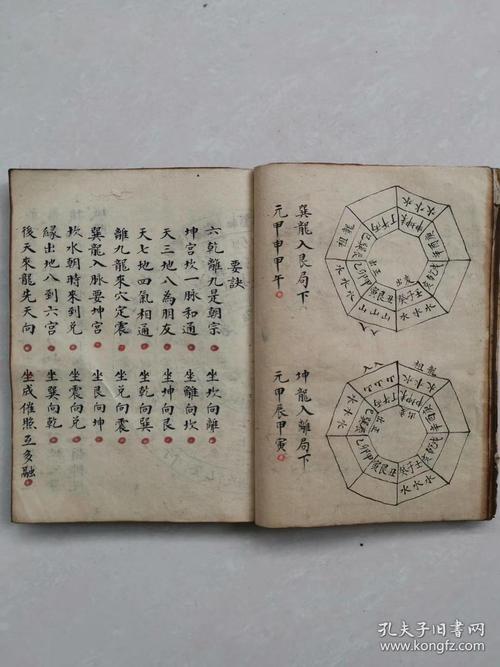 巽龍入艮局下
元甲申甲午
水水水
水水水
山山山
出元
癸子壬
坤龍入離局下
元甲辰甲寅
水水水
山山山
水水水
癸子壬
要訣
六乾離九是朝宗 坐坎向離
坤宮坎一脉和通 坐離向坎
天三地八為朋友 坐坤向艮
天七地四氣相通 坐乾向巽
離九龍來穴定震 坐兌向震
巽龍入脉要坤宮 坐艮向坤
坎水朝時來到兌 坐震向兌
緣出地八到六宮 坐巽向乾
後天來龍先天向 坐成催照五多融
孔夫子旧书网
kongfz.com